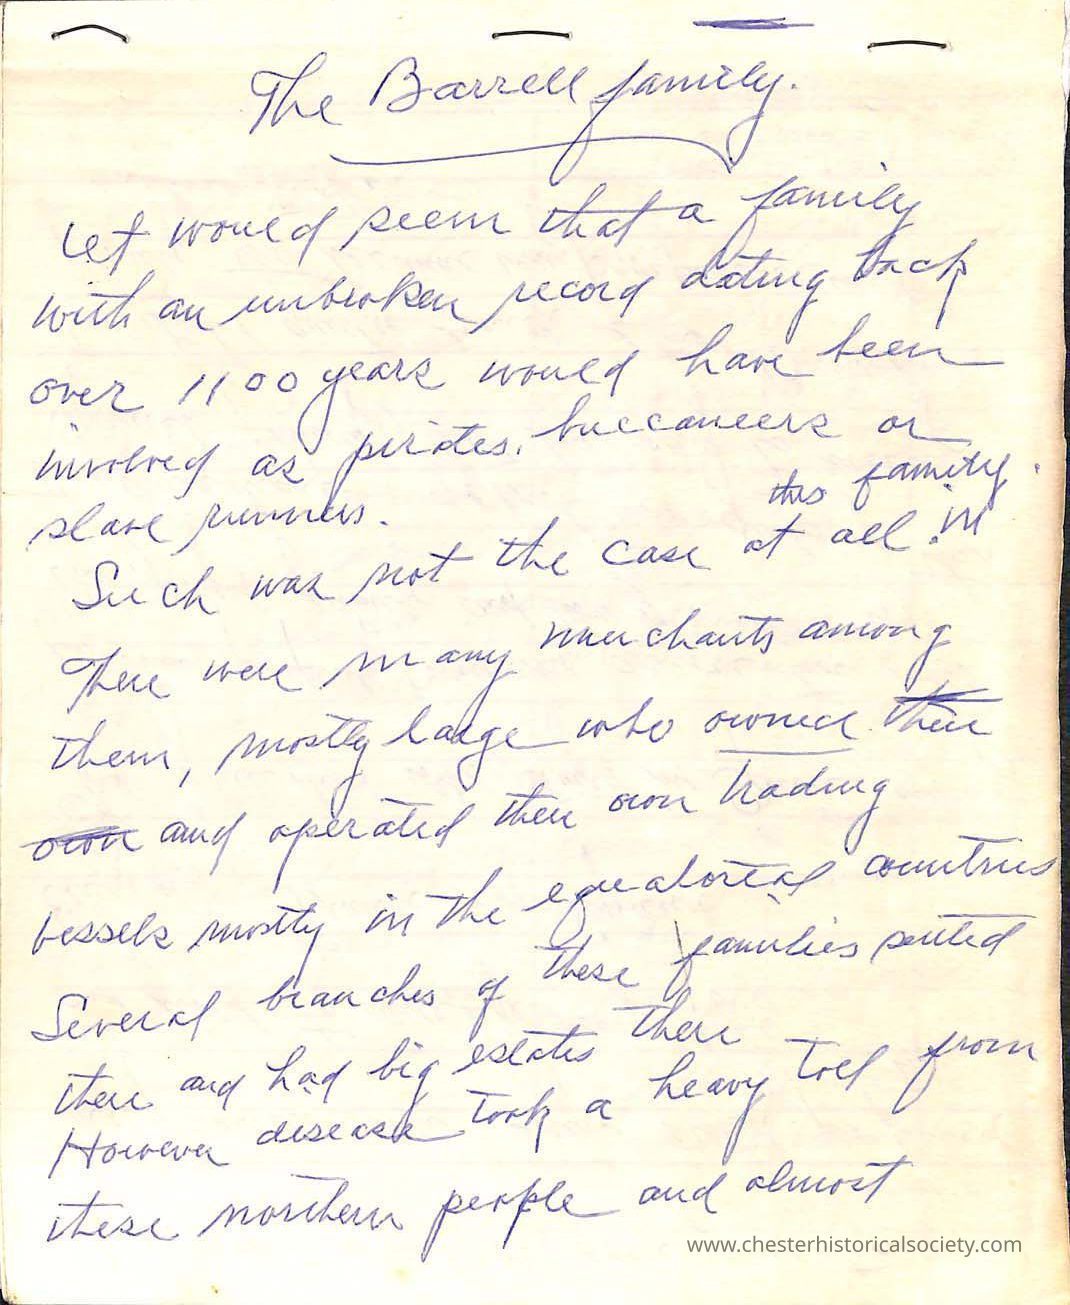 The Barrell family.
Let would seem that a family
with an unbroken record dating back
over 1100 years would have been
involved as pirates, buccaneers or
slave runners.
this family.
Such was not the case at all. in
There were many merchants among
them, mostly large who owned their
own and operated their own trading
vessels mostly in the equatorial countries
Several branches of these families settled
there and had big estates there
However disease took a heavy toll from
these northern people and almost
www.chesterhistoricalsociety.com